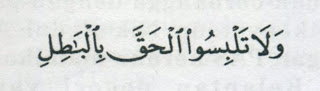 وَلَا تَلْبِسُوا۟ ٱلْحَقَّ بِٱلْبَـٰطِلِ